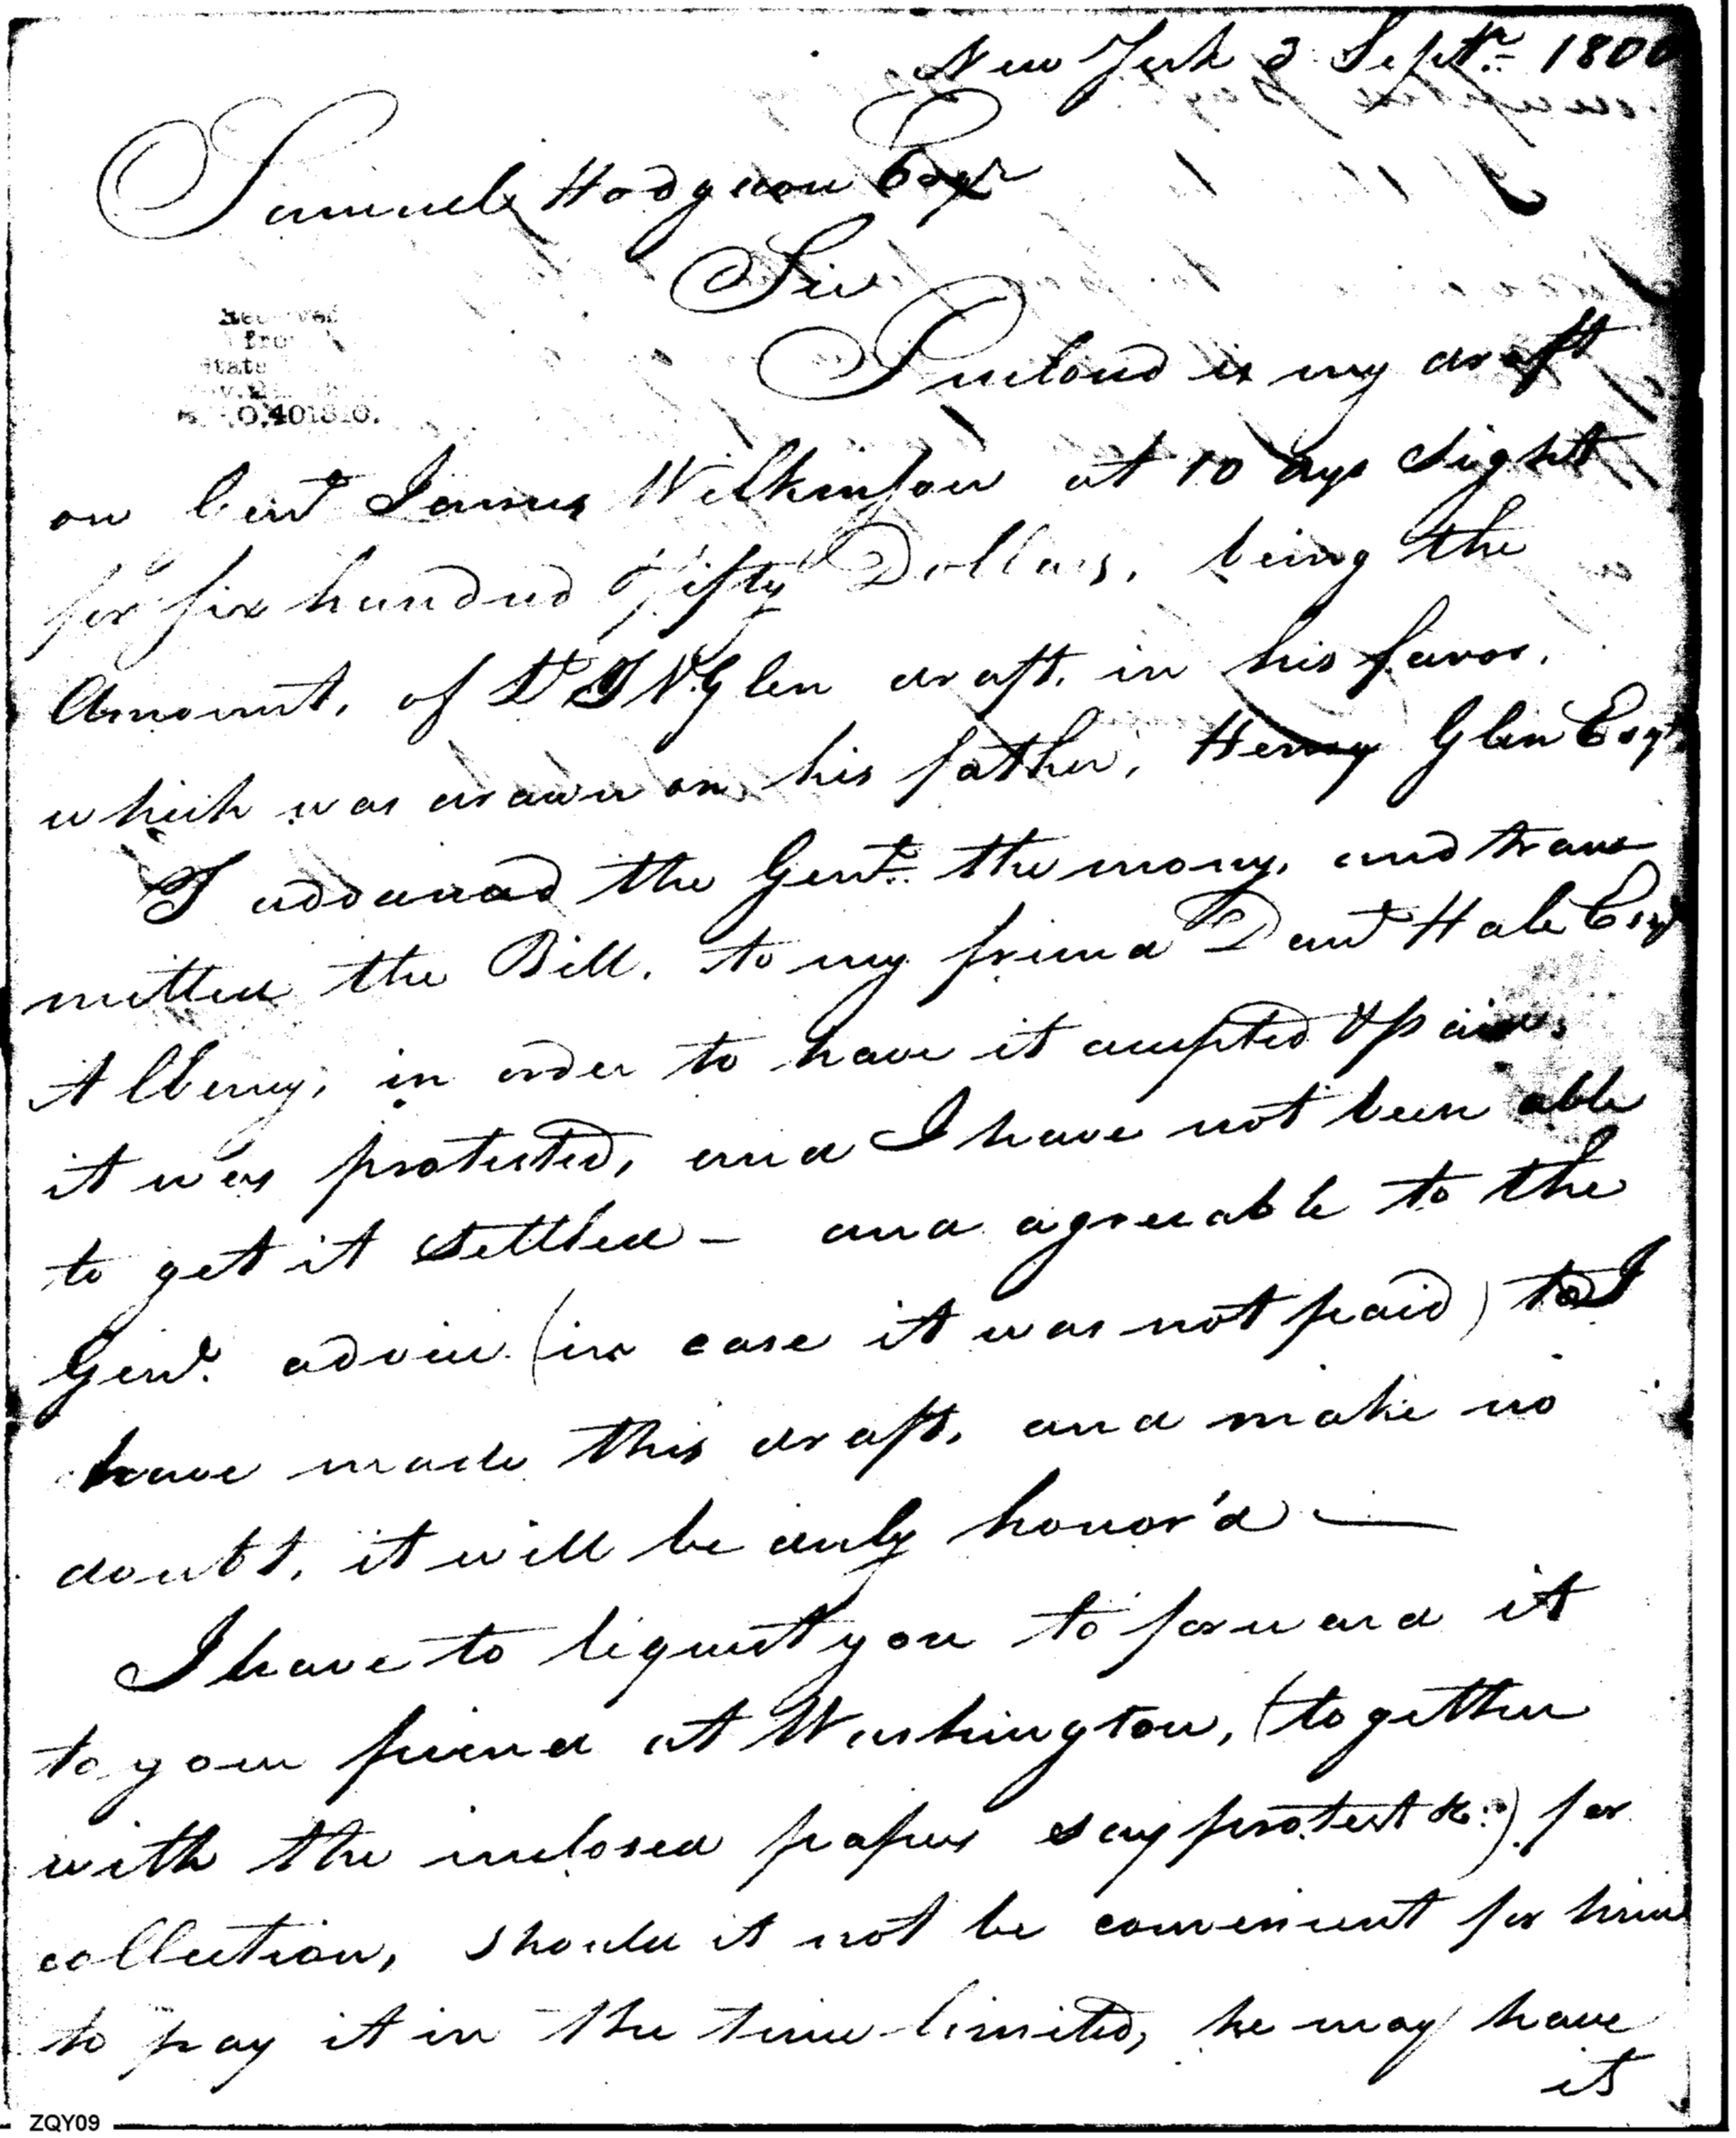 New York 3 Septr. 1800
Samuel Hodgson Esqr
Sir
Inclosed is my draft
on Genl James Wilkinson at 10 dys sight
for six hundred & fifty Dollars, being the
Amount, of Glen draft, in his favor,
which was drawn on his father, Henry Glen Esqr
I advanced the Genl. the mony, and trans
mitted the Bill, to my friend Danl Hale Esqr
Albany, in order to have it accepted & paid,
it was protested, and I have not been able
to get it settled — and agreeable to the
Genl. advice (in case it was not paid) I
have made this draft, and make no
doubt, it will be duly honor'd —
I have to request you to forward it
to your friend at Washington, (together
with the inclosed papers say protest &c) for
collection, should it not be convenient for him
to pay it in the time limited, he may have
it
Received
from
State
O.401810.
ZQY09